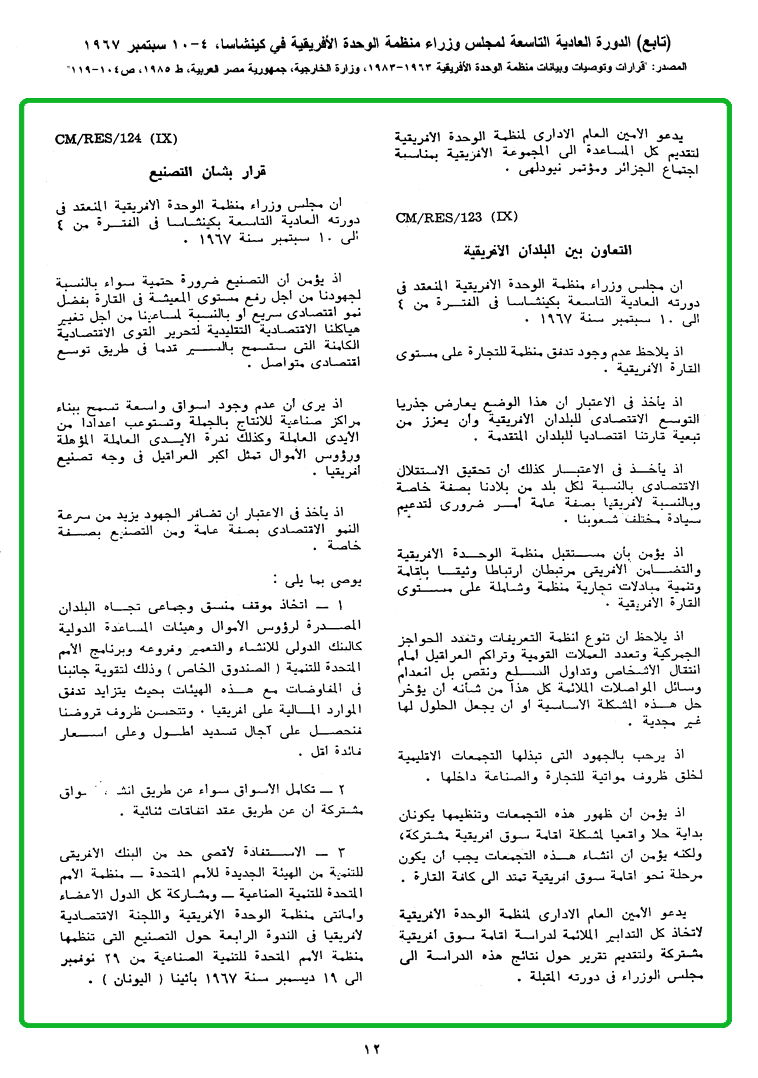 (تابع) الدورة العادية التاسعة لمجلس وزراء منظمة الوحدة الأفريقية في كينشاسا، ٤-١٠ سبتمبر ١٩٦٧
المصدر: "قرارات وتوصيات وبيانات منظمة الوحدة الأفريقية ١٩٦٣-١٩٨٣، وزارة الخارجية، جمهورية مصر العربية، ط ١٩٨٥، ص١٠٤-١١٩"
يدعو الامين العام الادارى لمنظمة الوحدة الافريقية
لتقديم كل المساعدة الى المجموعة الافريقية بمناسبة
اجتماع الجزائر ومؤتمر نيودلهى .
CM/RES/123 (IX)
التعاون بين البلدان الافريقية
ان مجلس وزراء منظمة الوحدة الافريقية المنعقد فى
دورته العادية التاسعة بكينشاسا فى الفترة من ٤
الى ١٠ سبتمبر سنة ١٩٦٧ .
اذ يلاحظ عدم وجود تدفق منظمة للتجارة على مستوى
القارة الافريقية .
اذ يأخذ فى الاعتبار ان هذا الوضع يعارض جذريا
التوسع الاقتصادى للبلدان الافريقية وأن يعزز من
تبعية قارتنا اقتصاديا للبلدان المتقدمة .
اذ يأخذ فى الاعتبار كذلك ان تحقيق الاستقلال
الاقتصادى بالنسبة لكل بلد من بلادنا بصفة خاصة
وبالنسبة لافريقيا بصفة عامة أمر ضرورى لتدعيم
سيادة مختلف شعوبنا .
اذ يؤمن بأن مستقبل منظمة الوحدة الافريقية
والتضامن الافريقى مرتبطان ارتباطا وثيقا باقامة
وتنمية مبادلات تجارية منظمة وشاملة على مستوى
القارة الافريقية .
اذ يلاحظ ان تنوع انظمة التعريفات وتعدد الحواجز
الجمركية وتعدد العملات القومية وتراكم العراقيل امام
انتقال الأشخاص وتداول السلع ونقص بل انعدام
وسائل المواصلات الملائمة كل هذا من شأنه أن يؤخر
حل هذه المشكلة الاساسية او أن يجعل الحلول لها
غير مجدية .
اذ يرحب بالجهود التى تبذلها التجمعات الاقليمية
لخلق ظروف مواتية للتجارة والصناعة داخلها .
اذ يؤمن أن ظهور هذه التجمعات وتنظيمها يكونان
بداية حلا واقعيا لمشكلة اقامة سوق أفريقية مشتركة،
ولكنه يؤمن أن انشاء هذه التجمعات يجب أن يكون
مرحلة نحو اقامة سوق أفريقية تمتد الى كافة القارة .
يدعو الأمين العام الادارى لمنظمة الوحدة الافريقية
لاتخاذ كل التدابير الملائمة لدراسة اقامة سوق أفريقية
مشتركة ولتقديم تقرير حول نتائج هذه الدراسة الى
مجلس الوزراء فى دورته المقبلة .
CM/RES/124 (IX)
قرار بشان التصنيع
ان مجلس وزراء منظمة الوحدة الأفريقية المنعقد فى
دورته العادية التاسعة بكينشاسا فى الفترة من ٤
الى ١٠ سبتمبر سنة ١٩٦٧ .
اذ يؤمن أن التصنيع ضرورة حتمية سواء بالنسبة
لجهودنا من اجل رفع مستوى المعيشة فى القارة بفضل
نمو اقتصادى سريع او بالنسبة لمساعينا من اجل تغيير
هياكلنا الاقتصادية التقليدية لتحرير القوى الاقتصادية
الكامنة التى ستسمح بالسير قدما فى طريق توسع
اقتصادى متواصل .
اذ يرى أن عدم وجود اسواق واسعة تسمح ببناء
مراكز صناعية للانتاج بالجملة وتستوعب اعدادا من
الأيدى العاملة وكذلك ندرة الأيدى العاملة المؤهلة
ورؤوس الأموال تمثل أكبر العراقيل فى وجه تصنيع
أفريقيا .
اذ يأخذ فى الاعتبار ان تضافر الجهود يزيد من سرعة
النمو الاقتصادى بصفة عامة ومن التصنيع بصفة
خاصة .
يوصى بما يلى :
١ ــ اتخاذ موقف منسق وجماعى تجاه البلدان
المصدرة لرؤوس الأموال وهيئات المساعدة الدولية
كالبنك الدولى للانشاء والتعمير وفروعه وبرنامج الأمم
المتحدة للتنمية ( الصندوق الخاص ) وذلك لتقوية جانبنا
فى المفاوضات مع هذه الهيئات بحيث يتزايد تدفق
الموارد المالية على افريقيا . وتتحسن ظروف قروضنا
فنحصل على آجال تسديد أطول وعلى اسعار
فائدة اقل .
٢ ــ تكامل الأسواق سواء عن طريق واق
مشتركة أن عن طريق عقد اتفاقات ثنائية .
٣ ــ الاستفادة لأقصى حد من البنك الافريقى
للتنمية من الهيئة الجديدة للأمم المتحدة ــ منظمة الأمم
المتحدة للتنمية الصناعية ــ ومشاركة كل الدول الاعضاء
وامانتى منظمة الوحدة الأفريقية واللجنة الاقتصادية
لأفريقيا فى الندوة الرابعة حول التصنيع التى تنظمها
منظمة الأمم المتحدة للتنمية الصناعية من ٢٩ نوفمبر
الى ١٩ ديسمبر سنة ١٩٦٧ بأثينا ( اليونان ) .
١٢